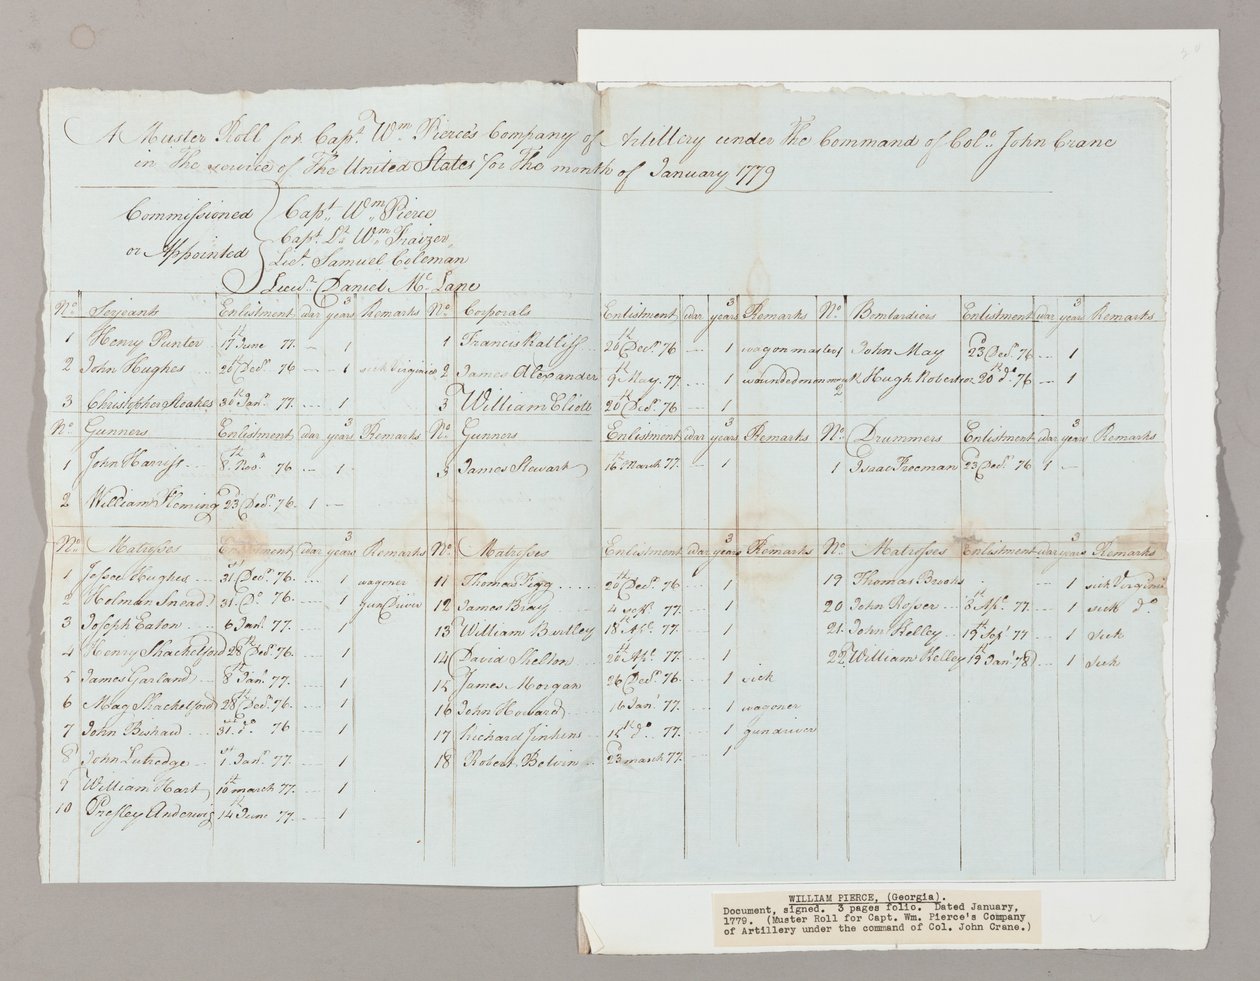 A Muster Roll for Capt. Wm. Pierce's Company of Artillery under The Command of Colo. John Crane
in The service of The United States for The month of January 1779
Commissioned
or Appointed
Capt. Wm. Pierce
Capt. Lt. Wm. Fraizer
Liet. Samuel Coleman
Lieut. Daniel Mc. Lane
No. Serjeants Enlistment war 3 years Remarks No. Corporals Enlistment war 3 years Remarks No. Bombardiers Enlistment war 3 years Remarks
1 Henry Punter 17th June 77. — 1 1 Francis Ratliff 26th Decr. 76 — 1 wagon master 1 John May 23d Decr. 76 — 1
2 John Hughes 26th Decr. 76 — 1 sick Virginia 2 James Alexander 9th May. 77. — 1 2 Hugh Robertson 20th do 76 — 1
3 Christopher Stoakes 30th Janr. 77. — 1 3 William Eliott 20th Decr. 76 — 1
No. Gunners Enlistment war 3 years Remarks No. Gunners Enlistment war 3 years Remarks No. Drummers Enlistment war 3 years Remarks
1 John Harriss 8th Novr. 76 — 1 3 James Stewart 16th March 77. — 1 1 Isaac Freeman 23d Decr. 76 1 —
2 William Fleming 23d Decr. 76. 1 —
No. Matrosses Enlistment war 3 years Remarks No. Matrosses Enlistment war 3 years Remarks No. Matrosses Enlistment war 3 years Remarks
1 Jessee Hughes 31st Decr. 76. 1 wagoner 11 Thomas Fegg 20th Decr. 76. 1 19 Thomas Brooks — 1 sick Virginia
2 Holman Snead 31 Dr. 76. 1 gun Driver 12 James Bray 4 Sepr. 77. 1 20 John Rosser 8th Apl. 77. 1 sick do
3 Joseph Eaton 6 Janr. 77. 1 13 William Burtley 18th 77. 1 21. John Kelley 17th 77 1 sick
4 Henry Shackelford 28th Decr. 76. 1 14 David Shelton 20th 77. 1 22 William Kelley 12th Janr. 78 1 sick
5 James Garland 8th Janr. 77. 1 15 James Morgan 26 Decr. 76. 1 sick
6 Mag Shackelford 28th Decr. 76. 1 16 John Howard 16 Janr. 77. 1 wagoner
7 John Beshaw 31st do 76 1 17 Richard Jinkins 15th do 77. 1 gun driver
8 John Lutredge 1st Janr. 77. 1 18 Robert Belvin 23d march 77. 1
9 William Hart 10th march 77. 1
10 Presley Anderwig 14th June 77. 1
WILLIAM PIERCE, (Georgia).
Document, signed. 3 pages folio. Dated January,
1779. (Muster Roll for Capt. Wm. Pierce's Company
of Artillery under the command of Col. John Crane.)